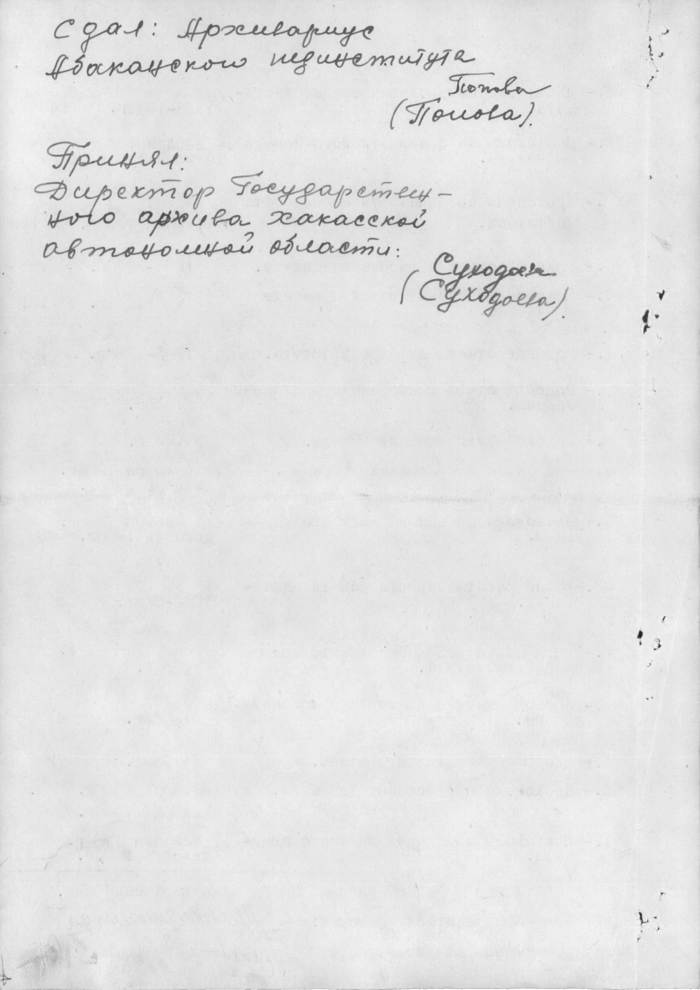 Сдал: Архивариус
Абаканского пединститута
Попова
(Попова).
Принял:
Директор Государствен-
ного архива хакасской
автономной области:
(Суходоева).